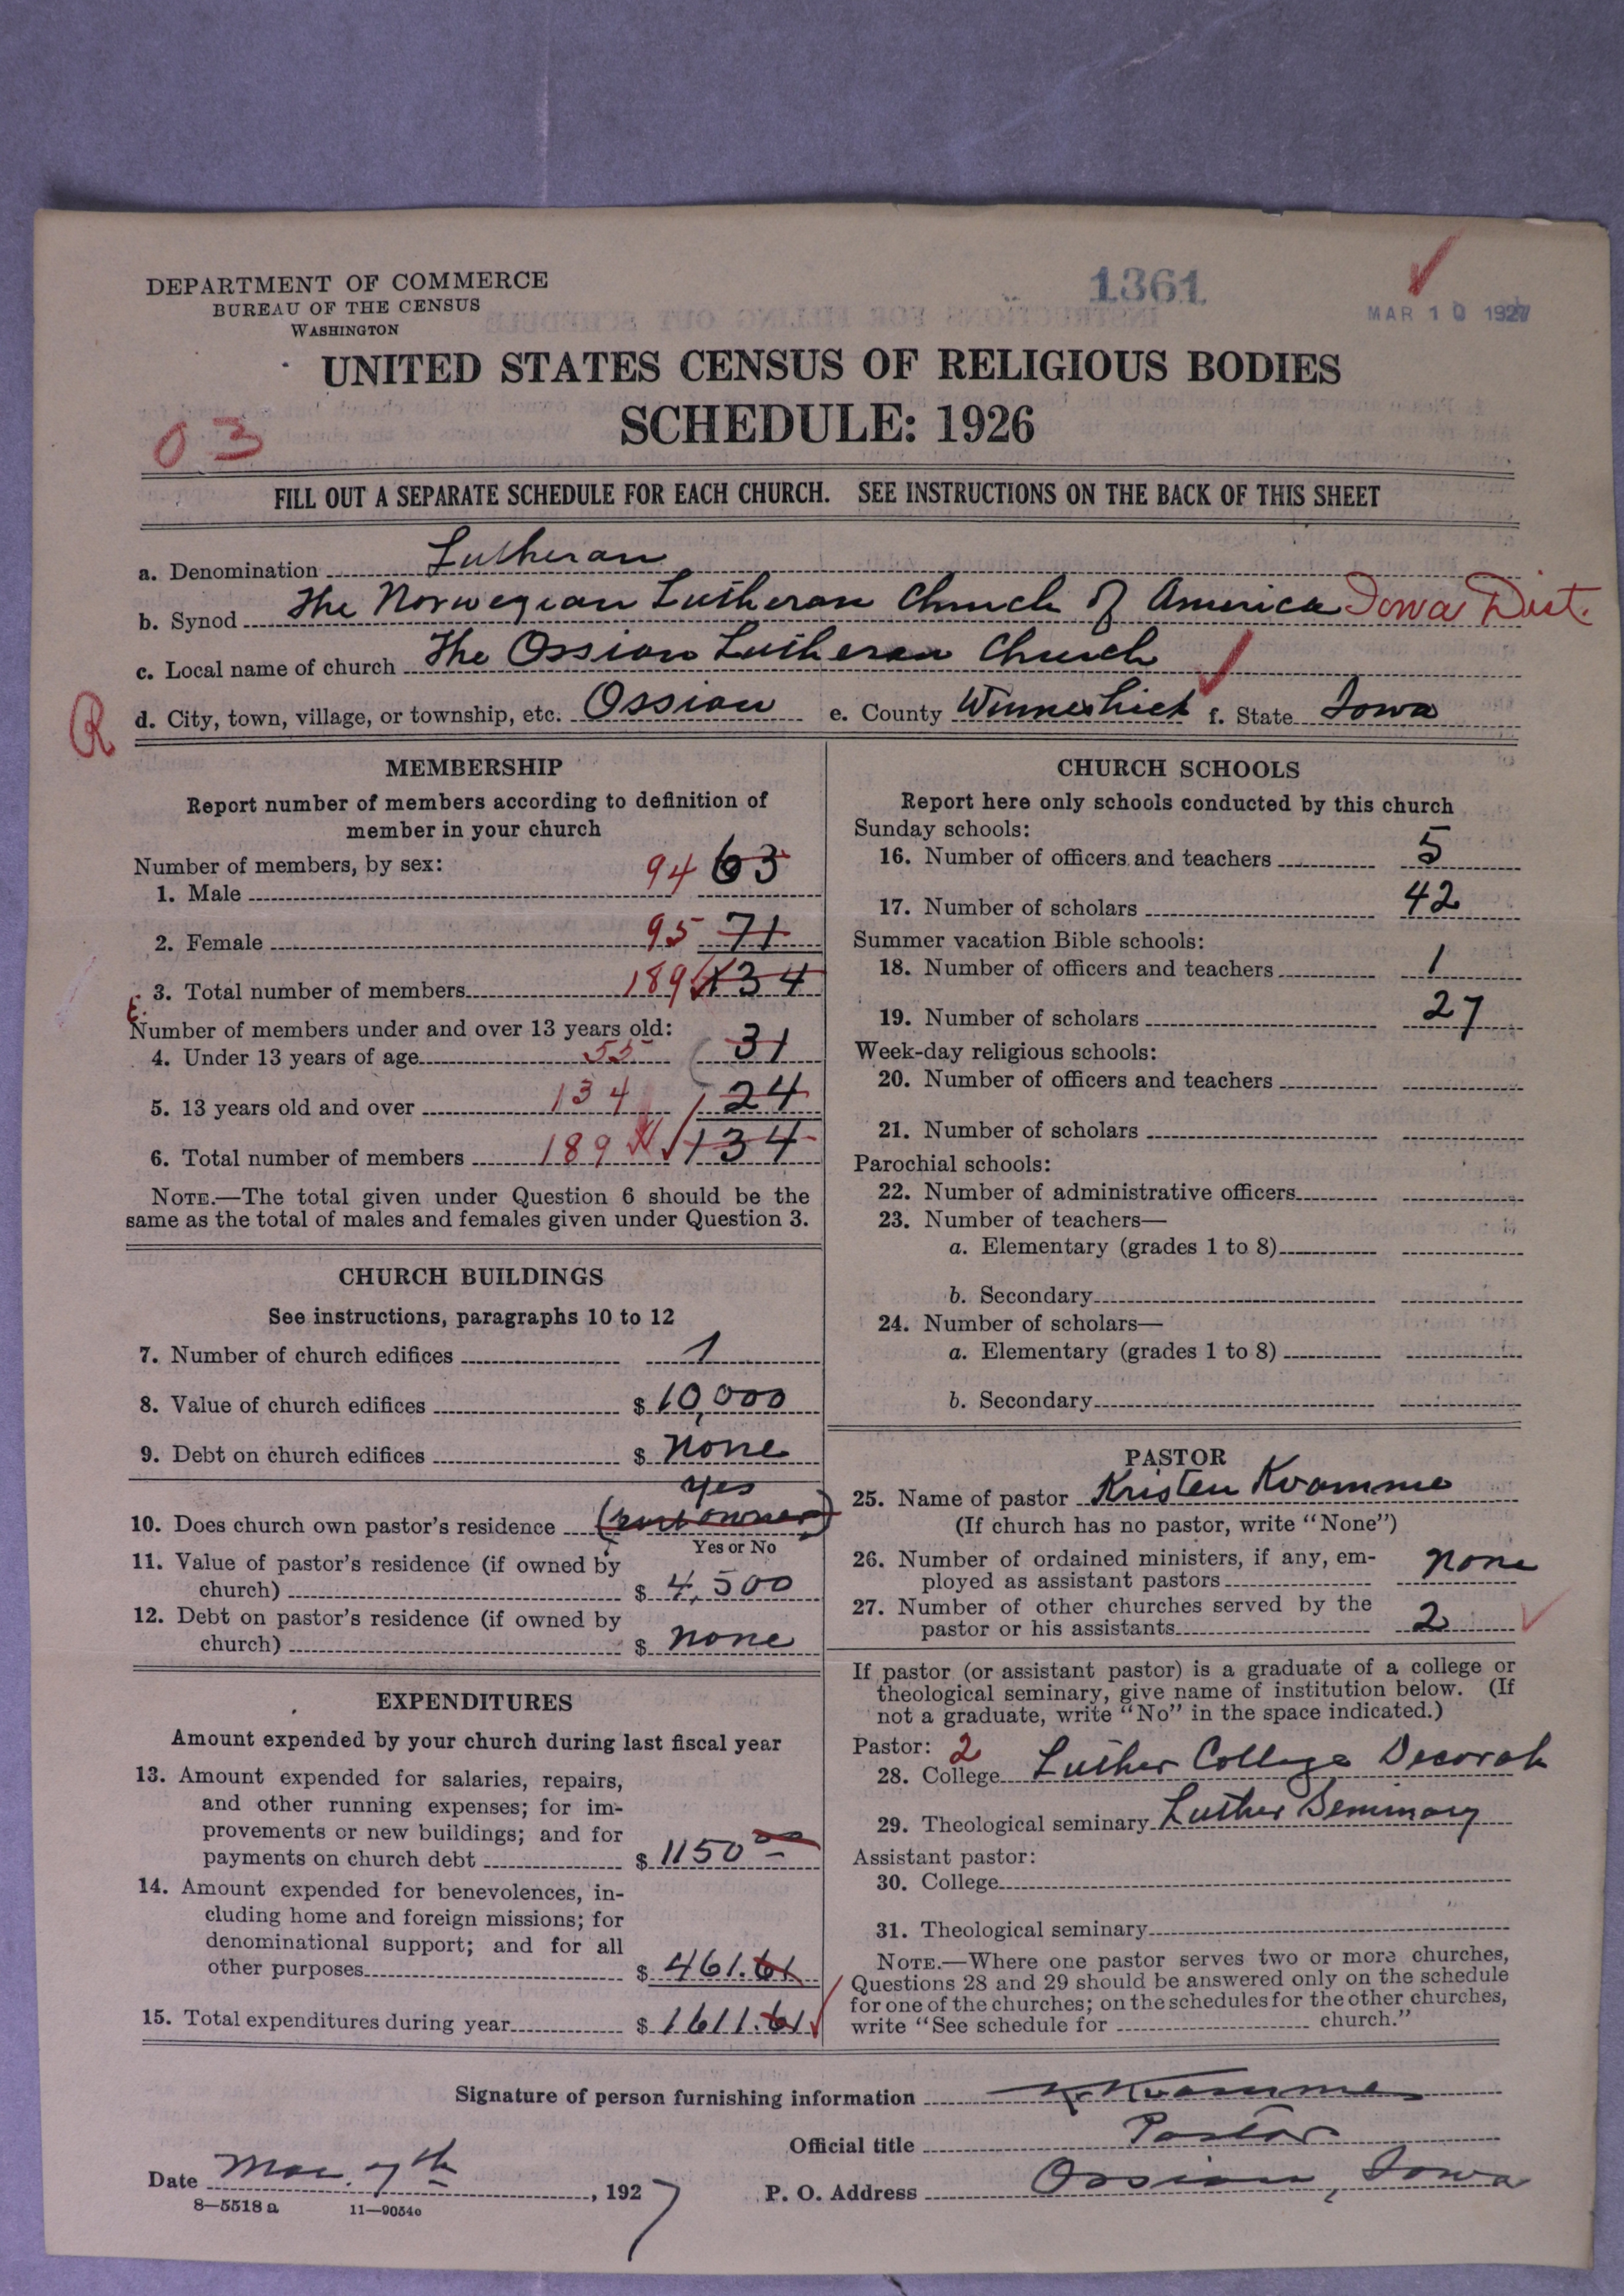 DEPARTMENT OF COMMERCE
BUREAU OF THE CENSUS
WASHINGTON
1361
MAR 10 1927
UNITED STATES CENSUS OF RELIGIOUS BODIES
SCHEDULE: 1926
03
FILL OUT A SEPARATE SCHEDULE FOR EACH CHURCH. SEE INSTRUCTIONS ON THE BACK OF THIS SHEET
a. Denomination Lutheran
b. Synod The Norwegian Lutheran Church of America Iowa Dist.
c. Local name of church The Ossian Lutheran Church
R
d. City, town, village, or township, etc. Ossian e. County Winneshiek f. State Iowa
MEMBERSHIP
Report number of members according to definition of
member in your church
Number of members, by sex:
1. Male 94 63
2. Female 95 71
3. Total number of members 189 134
Number of members under and over 13 years old:
4. Under 13 years of age 55 31
5. 13 years old and over 134 124
6. Total number of members 189 134
NOTE.—The total given under Question 6 should be the
same as the total of males and females given under Question 3.
CHURCH BUILDINGS
See instructions, paragraphs 10 to 12
7. Number of church edifices 1
8. Value of church edifices $ 10,000
9. Debt on church edifices $ none
yes
10. Does church own pastor's residence
Yes or No
11. Value of pastor's residence (if owned by
church) $ 4,500
12. Debt on pastor's residence (if owned by
church) $ none
EXPENDITURES
Amount expended by your church during last fiscal year
13. Amount expended for salaries, repairs,
and other running expenses; for im-
provements or new buildings; and for
payments on church debt $ 1150 00
14. Amount expended for benevolences, in-
cluding home and foreign missions; for
denominational support; and for all
other purposes $ 461.61
15. Total expenditures during year $ 1611.61
CHURCH SCHOOLS
Report here only schools conducted by this church
Sunday schools:
16. Number of officers and teachers 5
17. Number of scholars 42
Summer vacation Bible schools:
18. Number of officers and teachers 1
19. Number of scholars 27
Week-day religious schools:
20. Number of officers and teachers
21. Number of scholars
Parochial schools:
22. Number of administrative officers
23. Number of teachers—
a. Elementary (grades 1 to 8)
b. Secondary
24. Number of scholars—
a. Elementary (grades 1 to 8)
b. Secondary
PASTOR
25. Name of pastor Kristen Kvamme
(If church has no pastor, write "None")
26. Number of ordained ministers, if any, em-
ployed as assistant pastors none
27. Number of other churches served by the
pastor or his assistants 2
If pastor (or assistant pastor) is a graduate of a college or
theological seminary, give name of institution below. (If
not a graduate, write "No" in the space indicated.)
Pastor: 2
28. College Luther College Decorah
29. Theological seminary Luther Seminary
Assistant pastor:
30. College
31. Theological seminary
NOTE.—Where one pastor serves two or more churches,
Questions 28 and 29 should be answered only on the schedule
for one of the churches; on the schedules for the other churches,
write "See schedule for church."
Signature of person furnishing information K. Kvamme
Official title Pastor
Date Mar. 7th, 1927 P. O. Address Ossian, Iowa
8—5518a 11—9054o